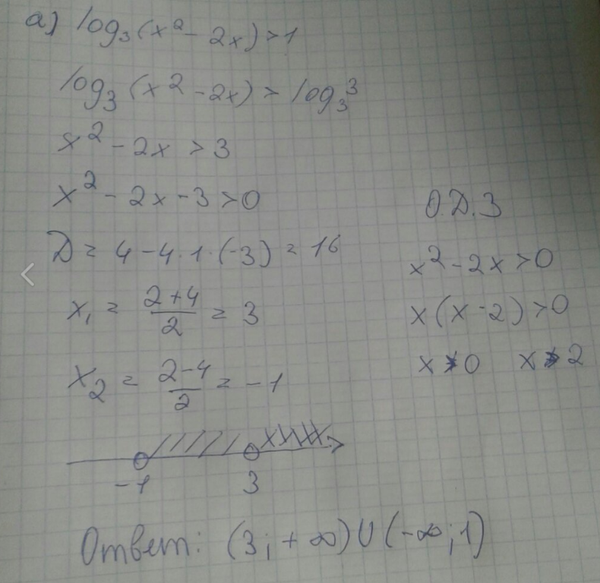 а) log₃(x² - 2x) > 1
log₃(x² - 2x) > log₃3
x² - 2x > 3
x² - 2x - 3 > 0
D = 4 - 4·1·(-3) = 16
x₁ = (2+4)/2 = 3
x₂ = (2-4)/2 = -1
-1 3
О.Д.З
x² - 2x > 0
x(x - 2) > 0
x > 0 x > 2
Ответ: (3; +∞) ∪ (-∞; 1)